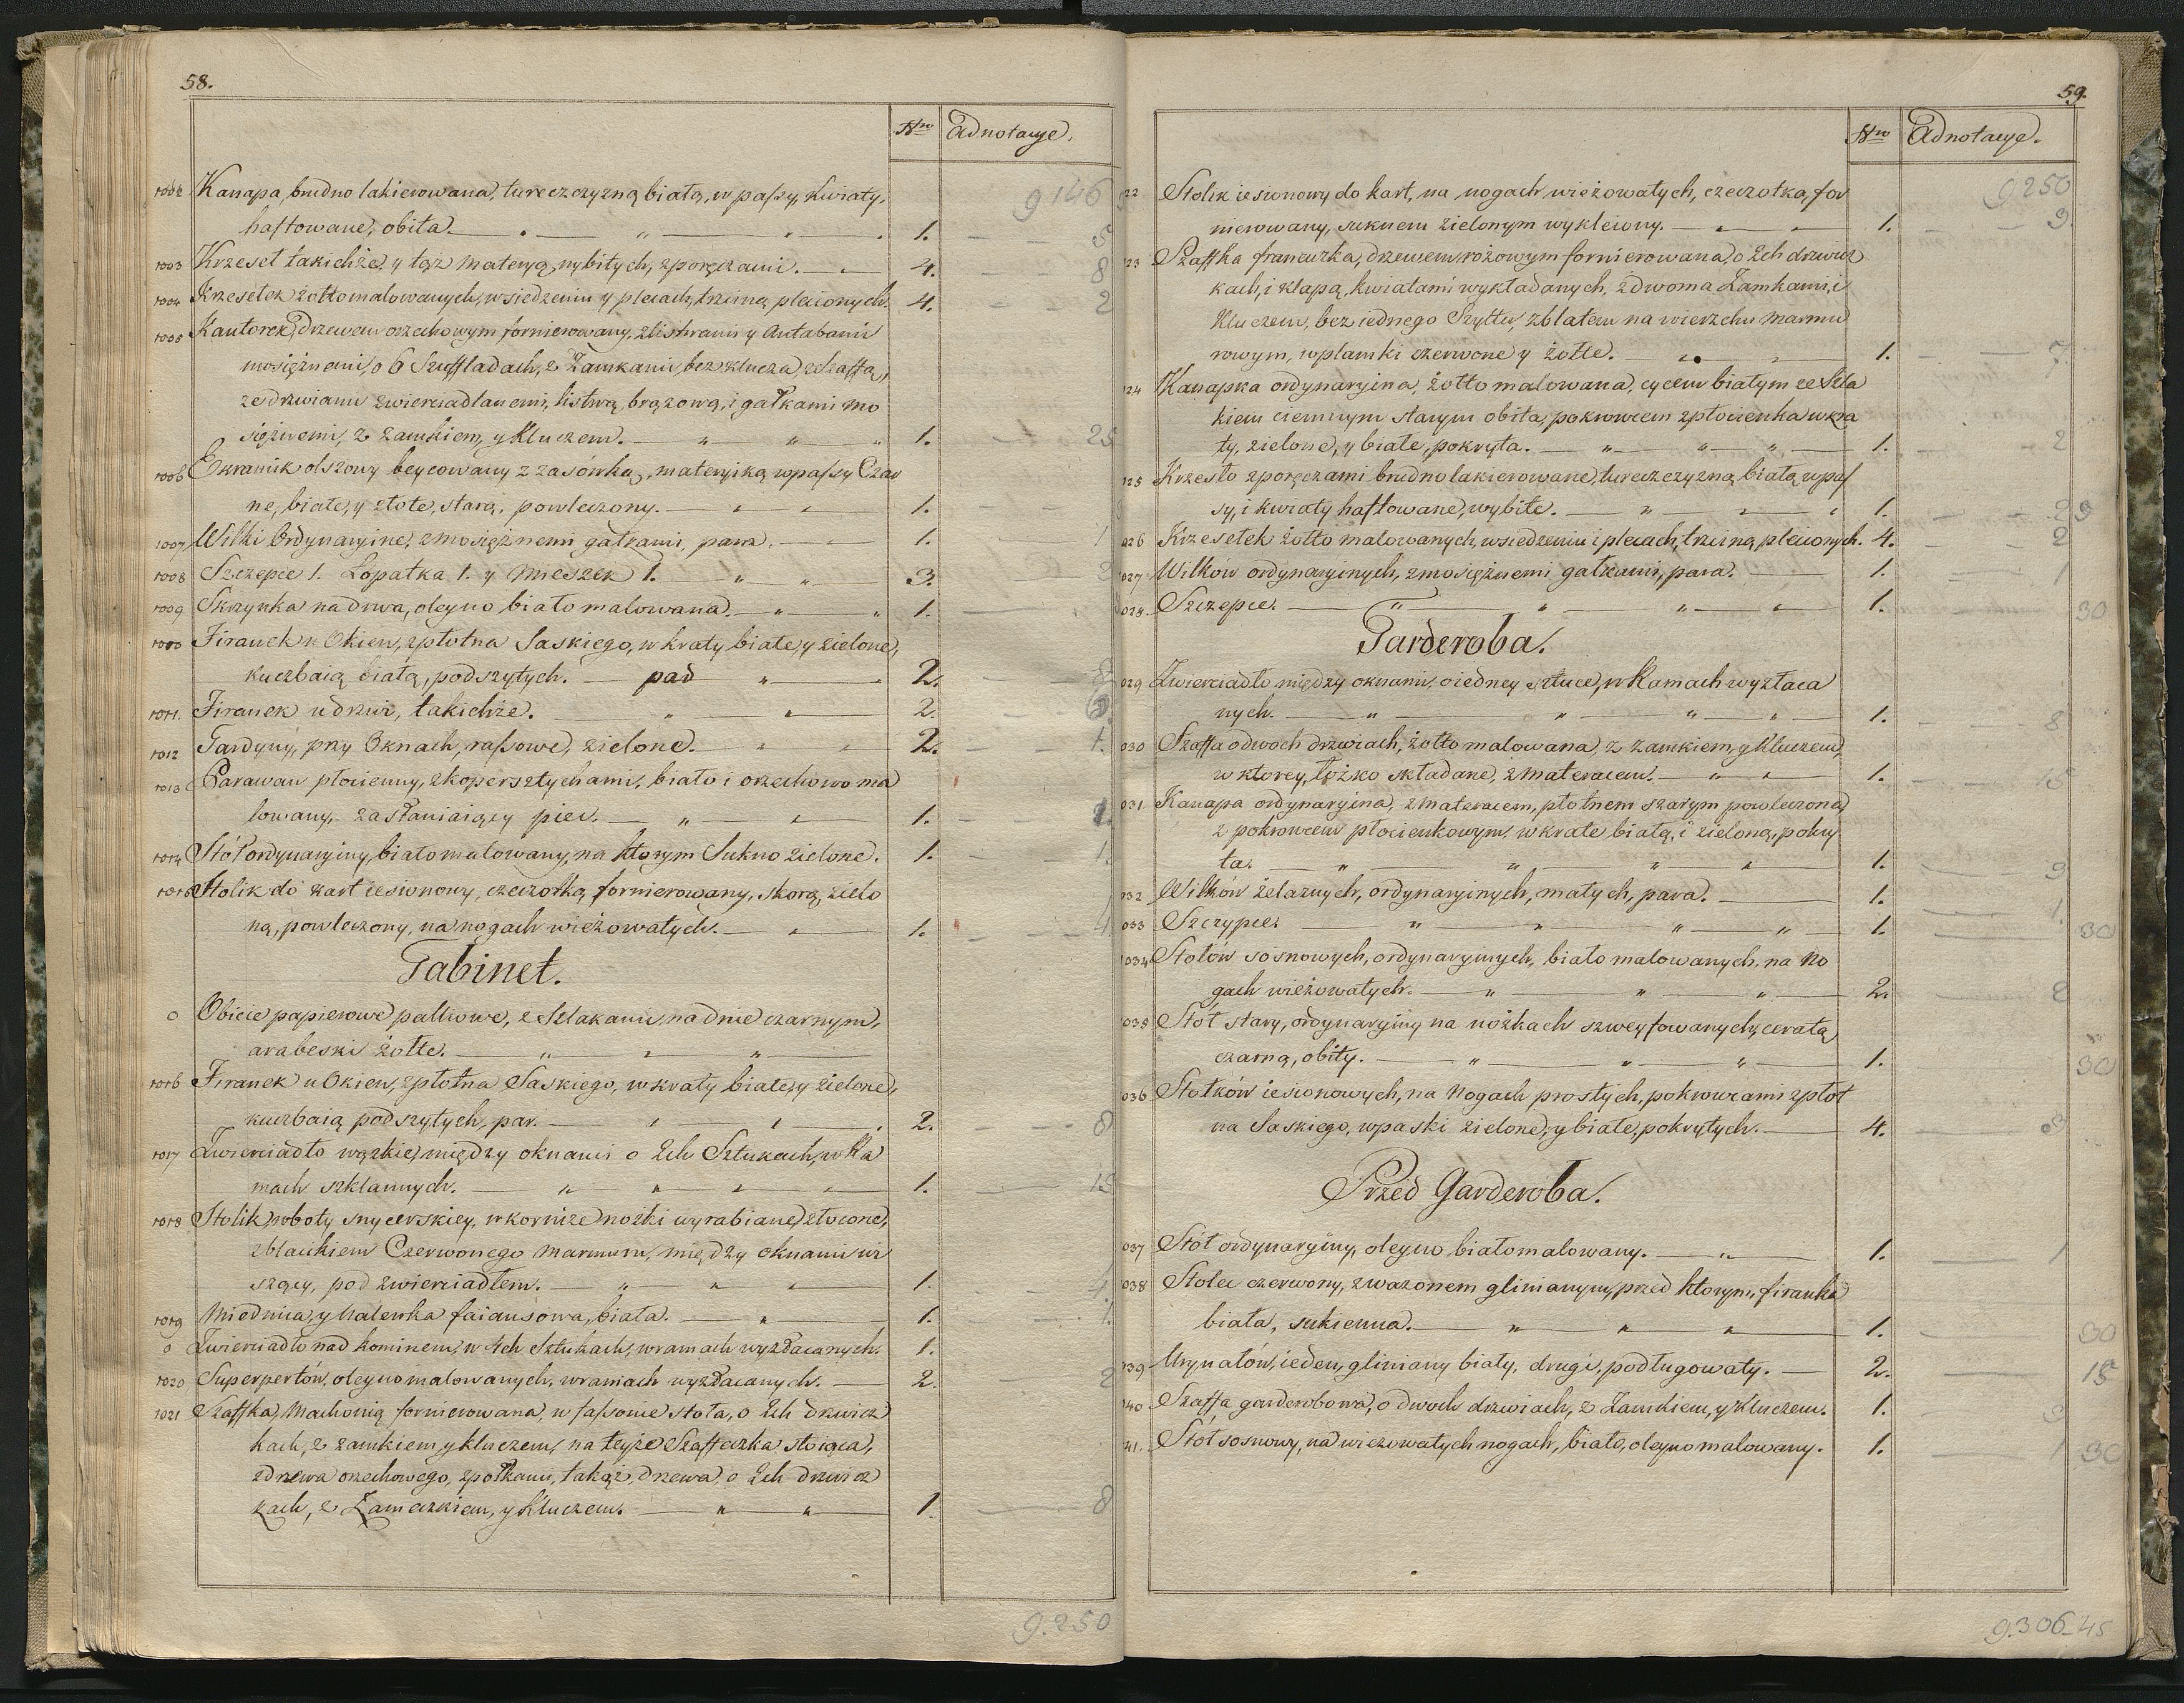 58.
Nro Adnotacye.
9146
1002 Kanapa, brudno lakierowana, turecczyzną białą, w passy, kwiaty,
haftowane, obita. 1. 5
1003 Krzeseł takichże, y tąż materyą, wybitych, z poręczami. 4. 8
1004 Krzesełek żółto malowanych, w siedzeniu y plecach, trzciną plecionych. 4. 2
1005 Kantorek, drzewem orzechowym fornierowany, z listwami y Antabami
mosiężnemi, o 6 Szuffladach, z Zamkami, bez klucza, z Szaffą,
ze drzwiami zwierciadlanemi, listwą, brązową, i gałkami mo
siężnemi, z zamkiem, y Kluczem. 1. 25
1006 Ekranik olszowy beycowany z zasówką, materyiką w passy Czar
ne, białe, y złote, starą, powleczony. 1.
1007 Wilki Ordynaryine, z mosiężnemi gałkami, para. 1. 1
1008 Szczepce 1. Łopatka 1. y Mieszek 1. 3.
1009 Skrzynka na drwa, oleyno biało malowana. 1.
1010 Firanek u Okien, z płotna Saskiego, w kraty białe, y zielone,
kuczbaią białą, podszytych. par 2. 8
1011. Firanek u drzwi, takichże. 2. 6
1012 Gardyny, przy Oknach, rassowe, zielone. 2. 1.
1013 Parawan płocienny, z kopersztychami, biało i orzechowo ma
lowany, zasłaniaiący piec. 1.
1014 Stół ordynaryiny, biało malowany, na ktorym Sukno zielone. 1. 1.
1015 Stolik do kart iesionowy, czeczotką, fornierowany, skorą, zielo
ną, powleczony, na nogach wieżowatych. 1. 4.
Gabinet.
0 Obicie papierowe paliowe, z Szlakami, na dnie czarnym,
arabeski żółte.
1016 Firanek u Okien, z płotna Saskiego, w kraty białe, y zielone,
kuczbaią podszytych, par. 2. 8
1017 Zwierciadło wązkie, między oknami o 2ch Sztukach, w Ra
mach szklannych. 1. 15
1018 Stolik, roboty snycerskiey, w kornize, nożki wyrabiane, złocone,
z blacikiem Czerwonego Marmuru, między oknami wi
szący, pod zwierciadłem. 1. 4.
1019 Miednica, y Nalewka faiansowa, biała. 1. 1.
0 Zwierciadło nad kominem, w 4ch Sztukach, w ramach wyzłacanych. 1.
1020 Superpertów, oleyno malowanych, w ramach wyzłacanych. 2. 2
1021 Szaffka, Machonią fornierowana, w fassonie stoła, o 2ch drzwicz
kach, z zamkiem, y kluczem, na teyże Szaffeczka stoiąca,
z drzewa orzechowego, z połkami, takąż, drzewa, o 2ch drzwicz
kach, z Zameczkiem, y Kluczem. 1. 8
9.250
59.
Nro Adnotacye.
9250
22 Stolik iesionowy do kart, na nogach wieżowatych, czeczotką, for
nierowany, suknem zielonym wykleiony. 1. 9.
23 Szaffka francuzka, drzewem różowym fornierowana, o 2ch drzwicz
kach, i klapą, kwiatami wykładanych, z dwoma Zamkami, i
Kluczem, bez iednego Szyltu, z blatem na wierzchu marmu
rowym, w plamki czerwone y żółte. 1. 7.
24 Kanapka ordynaryina, żółto malowana, cycem białym ze Szla
kiem ciemnym starym obita, pokrowcem z płocienka w kra
ty, zielone, y białe, pokryta. 1. 2
25 Krzesło z poręczami brudno lakierowane, turecczyzną białą w pas
sy, i kwiaty haftowane, wybite. 1. 2
026 Krzesełek żółto malowanych, w siedzeniu i plecach, trzciną, plecionych. 4. 2
027 Wilków ordynaryinych, z mosiężnemi gałkami, para. 1. 1
028. Szczepce. 1. 30
Garderoba.
029 Zwierciadło między oknami, o iedney sztuce, w Ramach wyzłaca
nych. 1. 8
030 Szaffa o dwoch drzwiach, żółto malowana, z zamkiem, y Kluczem,
w ktorey, łóżko składane, z Materacem. 1. 15
031 Kanapa ordynaryina, z materacem, płotnem szarym powleczona,
z pokrowcem płocienkowym, w krate białą, i zieloną, pokry
ta. 1. 9
032 Wilków żelaznych, ordynaryinych, małych, para. 1. 1.
033 Szczypce. 1. 30
034 Stołów sosnowych, ordynaryinych, biało malowanych, na no
gach wieżowatych. 2. 2
035 Stół stary, ordynaryiny na nóżkach szweyfowanych, ceratą
czarną, obity. 1. 30
036 Stołków iesionowych, na nogach prostych, pokrowcami z płot
na Saskiego, w paski zielone, y białe, pokrytych. 4. 3
Przed Garderoba.
037 Stół ordynaryiny, oleyno biało malowany. 1. 1
038 Stolec czerwony, z wazonem glinianym, przed ktorym, firanka
biała, sukienna. 1. 30
039 Urynałów, ieden, gliniany biały, drugi, podługowaty. 2. 15
40 Szaffa garderobowa, o dwoch drzwiach, z Zamkiem, y Kluczem. 1. 3
41. Stół sosnowy, na wieżowatych nogach, biało, oleyno malowany. 1. 1 30
9.306-45